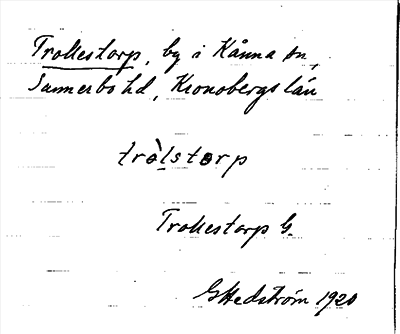 Trollestorp, by i Kånna sn,
Sunnerbo hd, Kronobergs län
tròlstorp
Trollestorp G.
G Hedström 1920